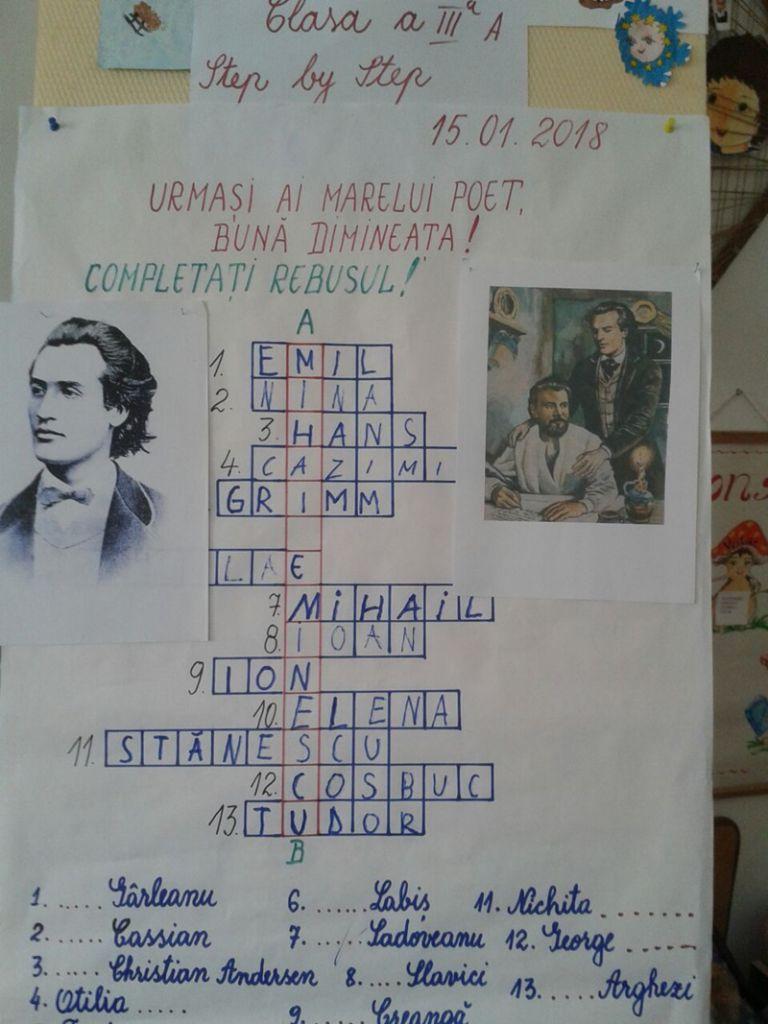 Clasa a IIIª A
Step by Step
15.01.2018
URMAȘI AI MARELUI POET,
BUNĂ DIMINEATA!
COMPLETAȚI REBUSUL!
A
1. EMIL
2. NINA
3. HANS
4. CAZIMI
GRIMM
LAE
7. MIHAIL
8. IOAN
9. ION
10. ELENA
11. STĂNESCU
12. COSBUC
13. TUDOR
B
1. ...... Gârleanu 6. ...... Labiș 11. Nichita .......
2. ...... Cassian 7. ...... Sadoveanu 12. George .....
3. ...... Christian Andersen 8. .... Slavici 13. ..... Arghezi
4. Otilia ..... 9. Creangă